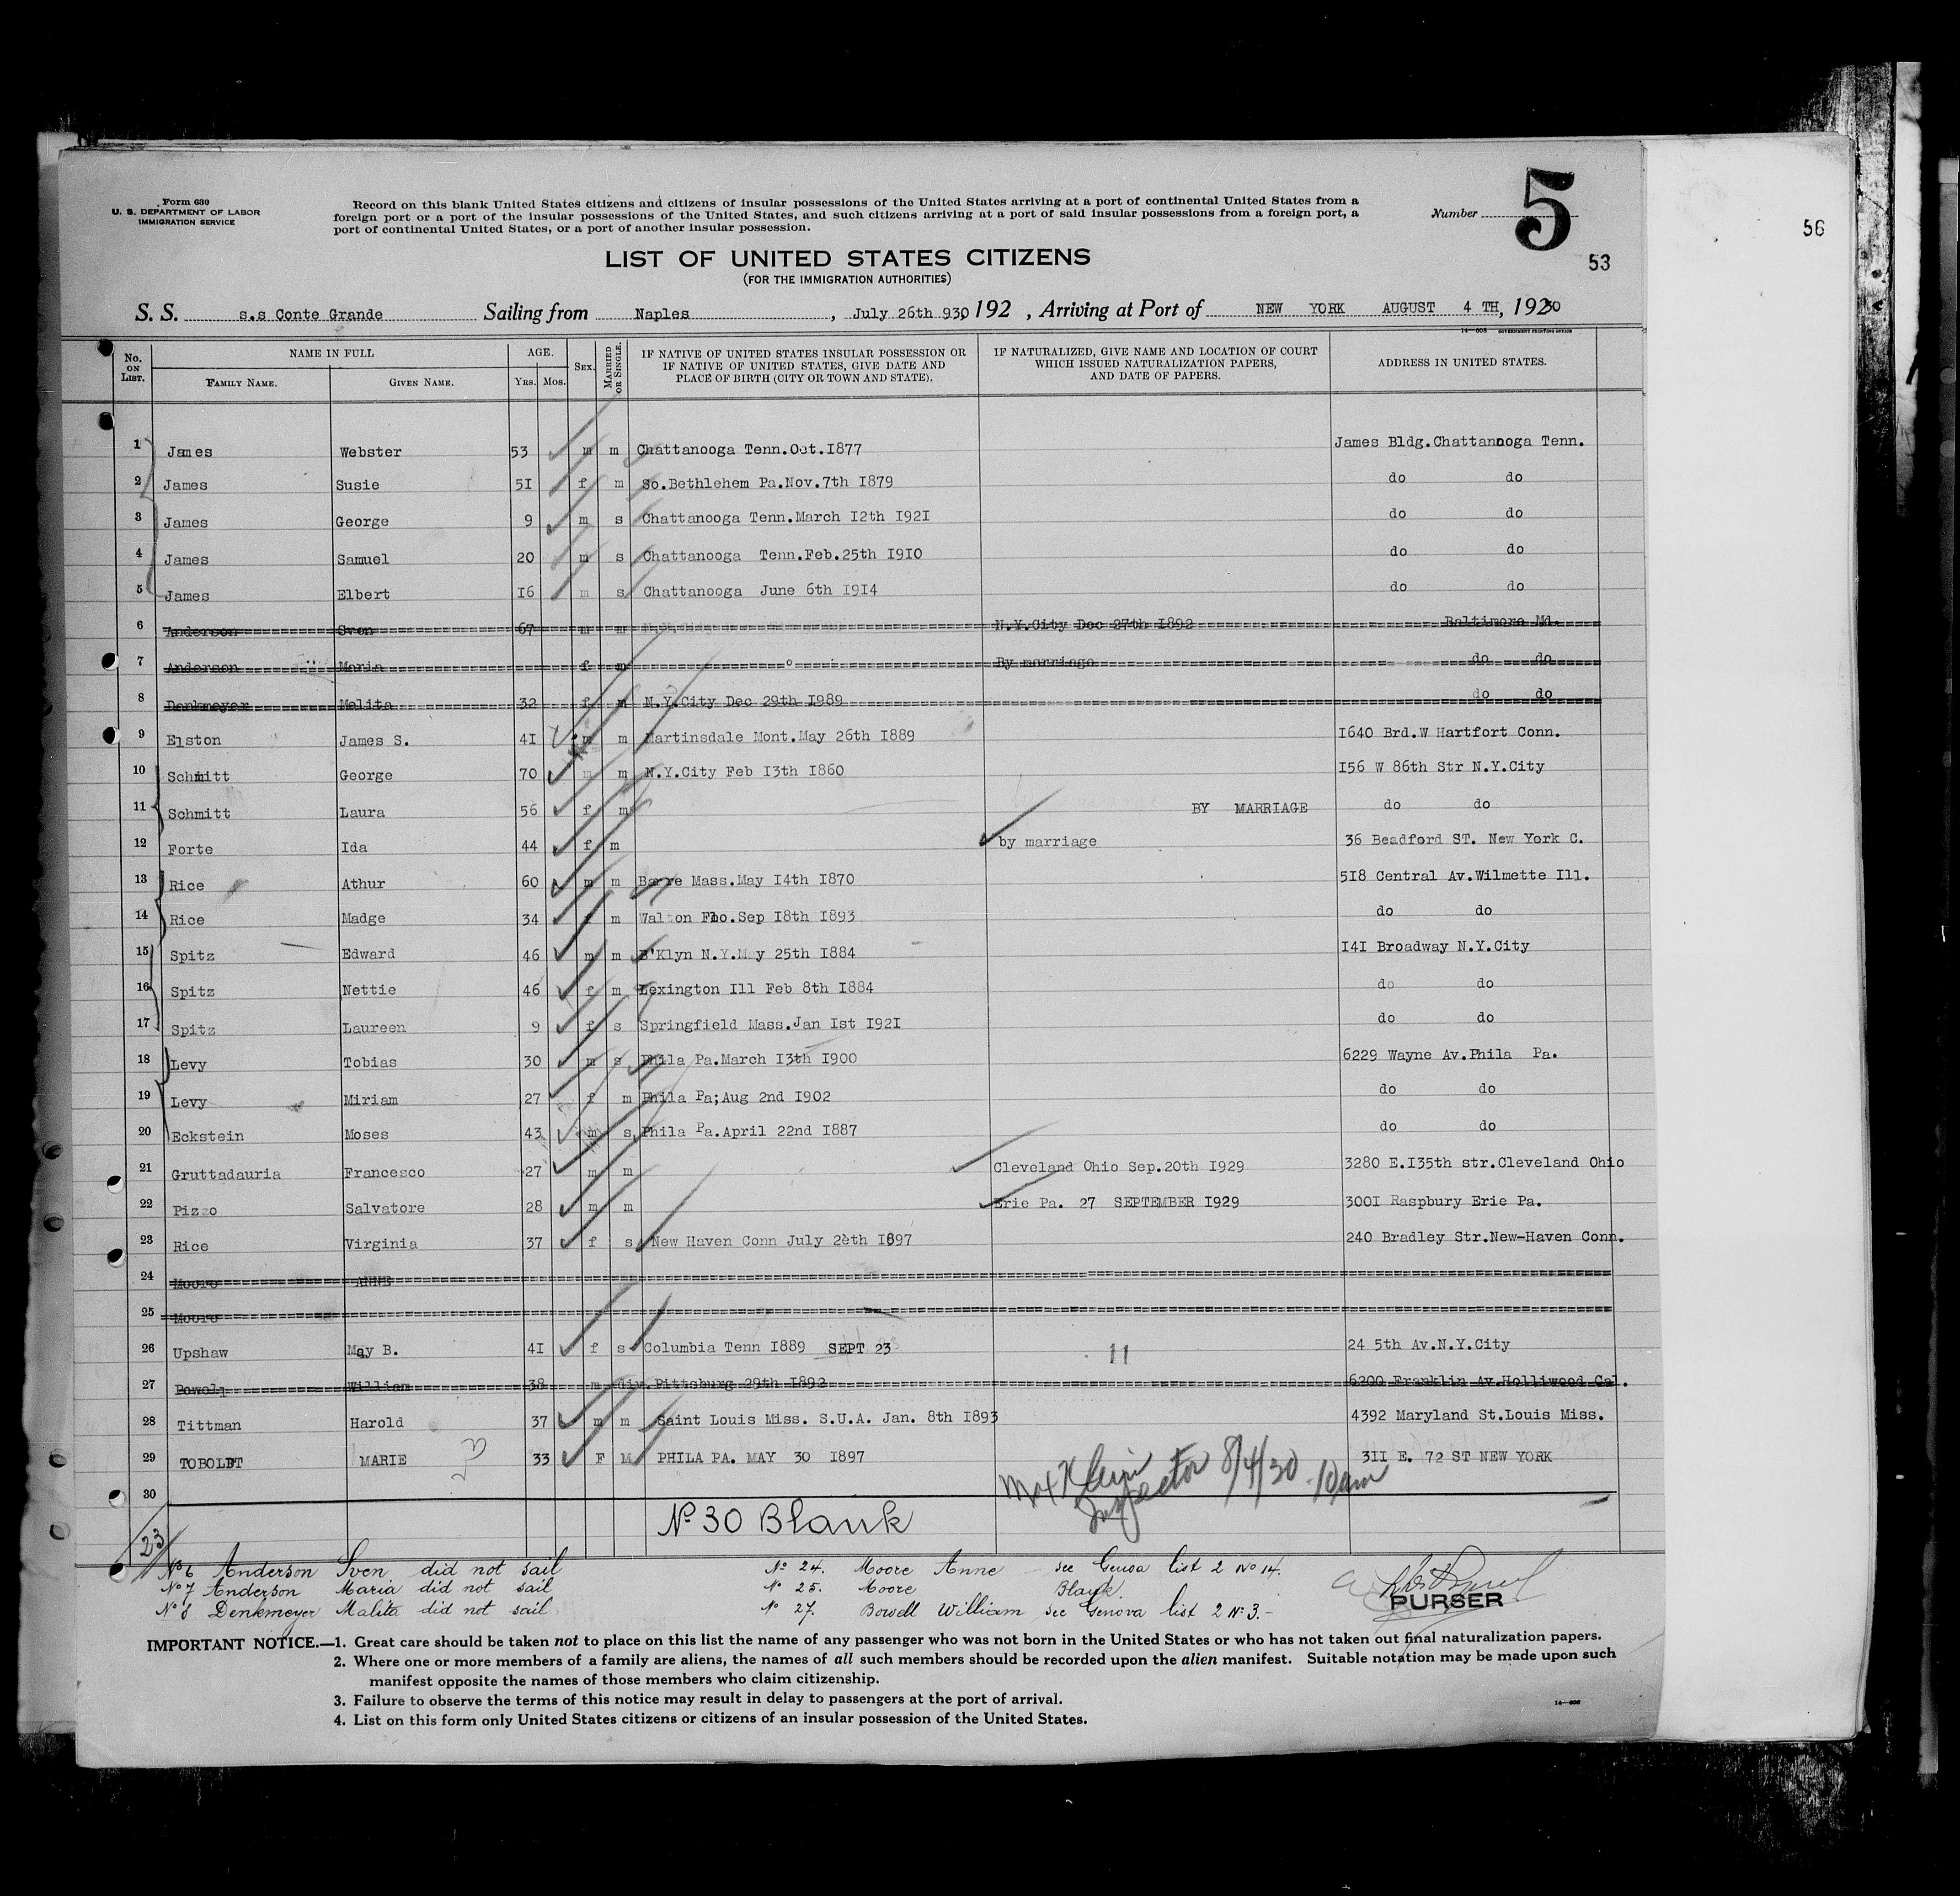 Form 630
U. S. DEPARTMENT OF LABOR
IMMIGRATION SERVICE
Record on this blank United States citizens and citizens of insular possessions of the United States arriving at a port of continental United States from a
foreign port or a port of the insular possessions of the United States, and such citizens arriving at a port of said insular possessions from a foreign port, a
port of continental United States, or a port of another insular possession.
Number 5
53
56
LIST OF UNITED STATES CITIZENS
(FOR THE IMMIGRATION AUTHORITIES)
S. S. s.s Conte Grande Sailing from Naples, July 26th 930 192 , Arriving at Port of NEW YORK AUGUST 4 TH, 1930
14—608 GOVERNMENT PRINTING OFFICE
No. ON LIST. NAME IN FULL FAMILY NAME. GIVEN NAME. AGE. YRS. MOS. SEX. MARRIED OR SINGLE. IF NATIVE OF UNITED STATES INSULAR POSSESSION OR IF NATIVE OF UNITED STATES, GIVE DATE AND PLACE OF BIRTH (CITY OR TOWN AND STATE). IF NATURALIZED, GIVE NAME AND LOCATION OF COURT WHICH ISSUED NATURALIZATION PAPERS, AND DATE OF PAPERS. ADDRESS IN UNITED STATES.
1 James Webster 53 m m Chattanooga Tenn.Oct.1877 James Bldg.Chattanooga Tenn.
2 James Susie 51 f m So.Bethlehem Pa.Nov.7th 1879 do do
3 James George 9 m s Chattanooga Tenn.March 12th 1921 do do
4 James Samuel 20 m s Chattanooga Tenn.Feb.25th 1910 do do
5 James Elbert 16 m s Chattanooga June 6th 1914 do do
6 Anderson Sven 67 m m N.Y.City Dec 27th 1892 Baltimore Md.
7 Anderson Maria f m By marriage do do
8 Denkmeyer Malita 32 f m N.Y.City Dec 29th 1989 do do
9 Elston James S. 41 m m Martinsdale Mont.May 26th 1889 1640 Brd.W Hartfort Conn.
10 Schmitt George 70 m m N.Y.City Feb 13th 1860 156 W 86th Str N.Y.City
11 Schmitt Laura 56 f m BY MARRIAGE do do
12 Forte Ida 44 f m by marriage 36 Beadford ST. New York C.
13 Rice Athur 60 m m Barre Mass.May 14th 1870 518 Central Av.Wilmette Ill.
14 Rice Madge 34 f m Walton Flo.Sep 18th 1893 do do
15 Spitz Edward 46 m m B'Klyn N.Y.May 25th 1884 141 Broadway N.Y.City
16 Spitz Nettie 46 f m Lexington Ill Feb 8th 1884 do do
17 Spitz Laureen 9 f s Springfield Mass.Jan 1st 1921 do do
18 Levy Tobias 30 m s Phila Pa.March 13th 1900 6229 Wayne Av.Phila Pa.
19 Levy Miriam 27 f m Phila Pa;Aug 2nd 1902 do do
20 Eckstein Moses 43 m s Phila Pa.April 22nd 1887 do do
21 Gruttadauria Francesco 27 m m Cleveland Ohio Sep.20th 1929 3280 E.135th str.Cleveland Ohio
22 Pizzo Salvatore 28 m m Erie Pa. 27 SEPTEMBER 1929 3001 Raspbury Erie Pa.
23 Rice Virginia 37 f s New Haven Conn July 28th 1897 240 Bradley Str.New-Haven Conn.
24 Moore ANNE
25 Moore
26 Upshaw May B. 41 f s Columbia Tenn 1889 SEPT 23 11 24 5th Av.N.Y.City
27 Powell William 38 m div. Pittsburg 29th 1892 6200 Franklin Av.Holliwood Cal.
28 Tittman Harold 37 m m Saint Louis Miss. S.U.A. Jan. 8th 1893 4392 Maryland St.Louis Miss.
29 TOBOLDT MARIE 33 F M PHILA PA. MAY 30 1897 311 E. 72 ST NEW YORK
30
Max Klein
Inspector 8/4/30 10am
No 30 Blank
23
No 6 Anderson Sven did not sail
No 7 Anderson Maria did not sail
No 8 Denkmeyer Malita did not sail
No 24. Moore Anne - see Genoa list 2 No 14.
No 25. Moore Blank.
No 27. Bowell William see Genova list 2 No 3.-
PURSER
IMPORTANT NOTICE.—1. Great care should be taken not to place on this list the name of any passenger who was not born in the United States or who has not taken out final naturalization papers.
2. Where one or more members of a family are aliens, the names of all such members should be recorded upon the alien manifest. Suitable notation may be made upon such
manifest opposite the names of those members who claim citizenship.
3. Failure to observe the terms of this notice may result in delay to passengers at the port of arrival.
4. List on this form only United States citizens or citizens of an insular possession of the United States.
14—608